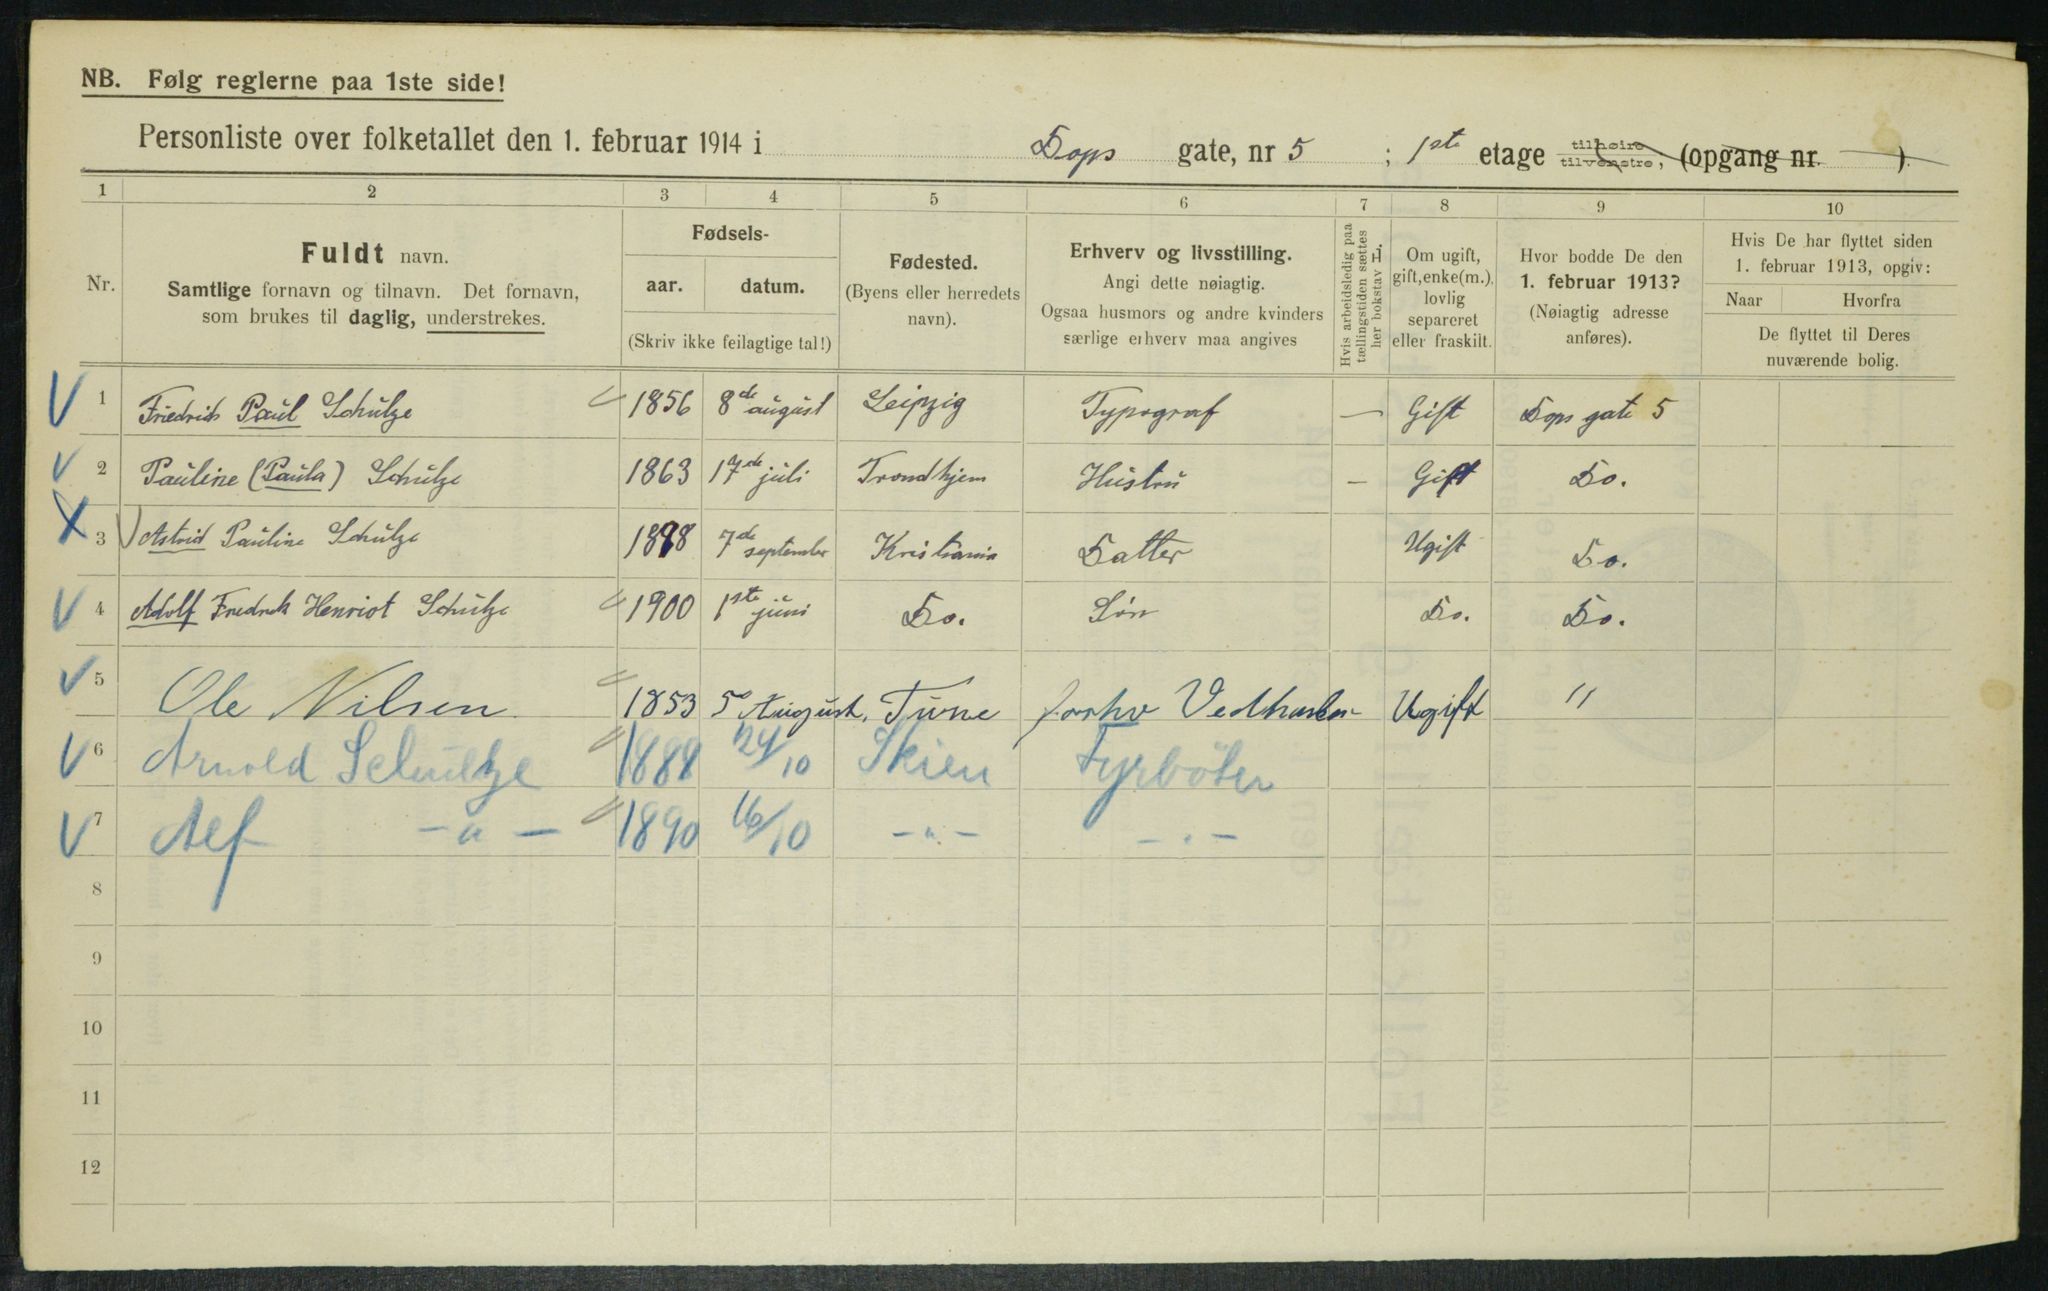 NB. Følg reglerne paa 1ste side!
Personliste over folketallet den 1. februar 1914 i Dops gate, nr 5 ; 1ste etage tilhøire tilvenstre, (opgang nr. ).
1 2 3 4 5 6 7 8 9 10
Nr.
Fuldt navn.
Samtlige fornavn og tilnavn. Det fornavn,
som brukes til daglig, understrekes.
Fødsels-
aar. datum.
(Skriv ikke feilagtige tal!)
Fødested.
(Byens eller herredets
navn).
Erhverv og livsstilling.
Angi dette nøiagtig.
Ogsaa husmors og andre kvinders
særlige erhverv maa angives
Hvis arbeidsledig paa
tællingstiden sættes
her bokstav L.
Om ugift,
gift, enke(m.),
lovlig
separeret
eller fraskilt.
Hvor bodde De den
1. februar 1913?
(Nøiagtig adresse
anføres).
Hvis De har flyttet siden
1. februar 1913, opgiv:
Naar Hvorfra
De flyttet til Deres
nuværende bolig.
1 Friedrich Paul Schulze 1856 8de august Leipzig Typograf — Gift Dops gate 5
2 Pauline (Paula) Schulze 1863 17de juli Trondhjem Hustru — Gift Do.
3 Astrid Pauline Schulze 1898 7de september Kristiania Datter Ugift Do.
4 Adolf Fredrek Henriot Schulze 1900 1ste juni Do. Søn Do. Do.
5 Ole Nilsen 1853 5 August, Tune forhv Vedhandler Ugift "
6 Arnold Schultze 1888 24/10 Skien Fyrbøter
7 Alf -"- 1890 16/10 -"- -"-
8
9
10
11
12